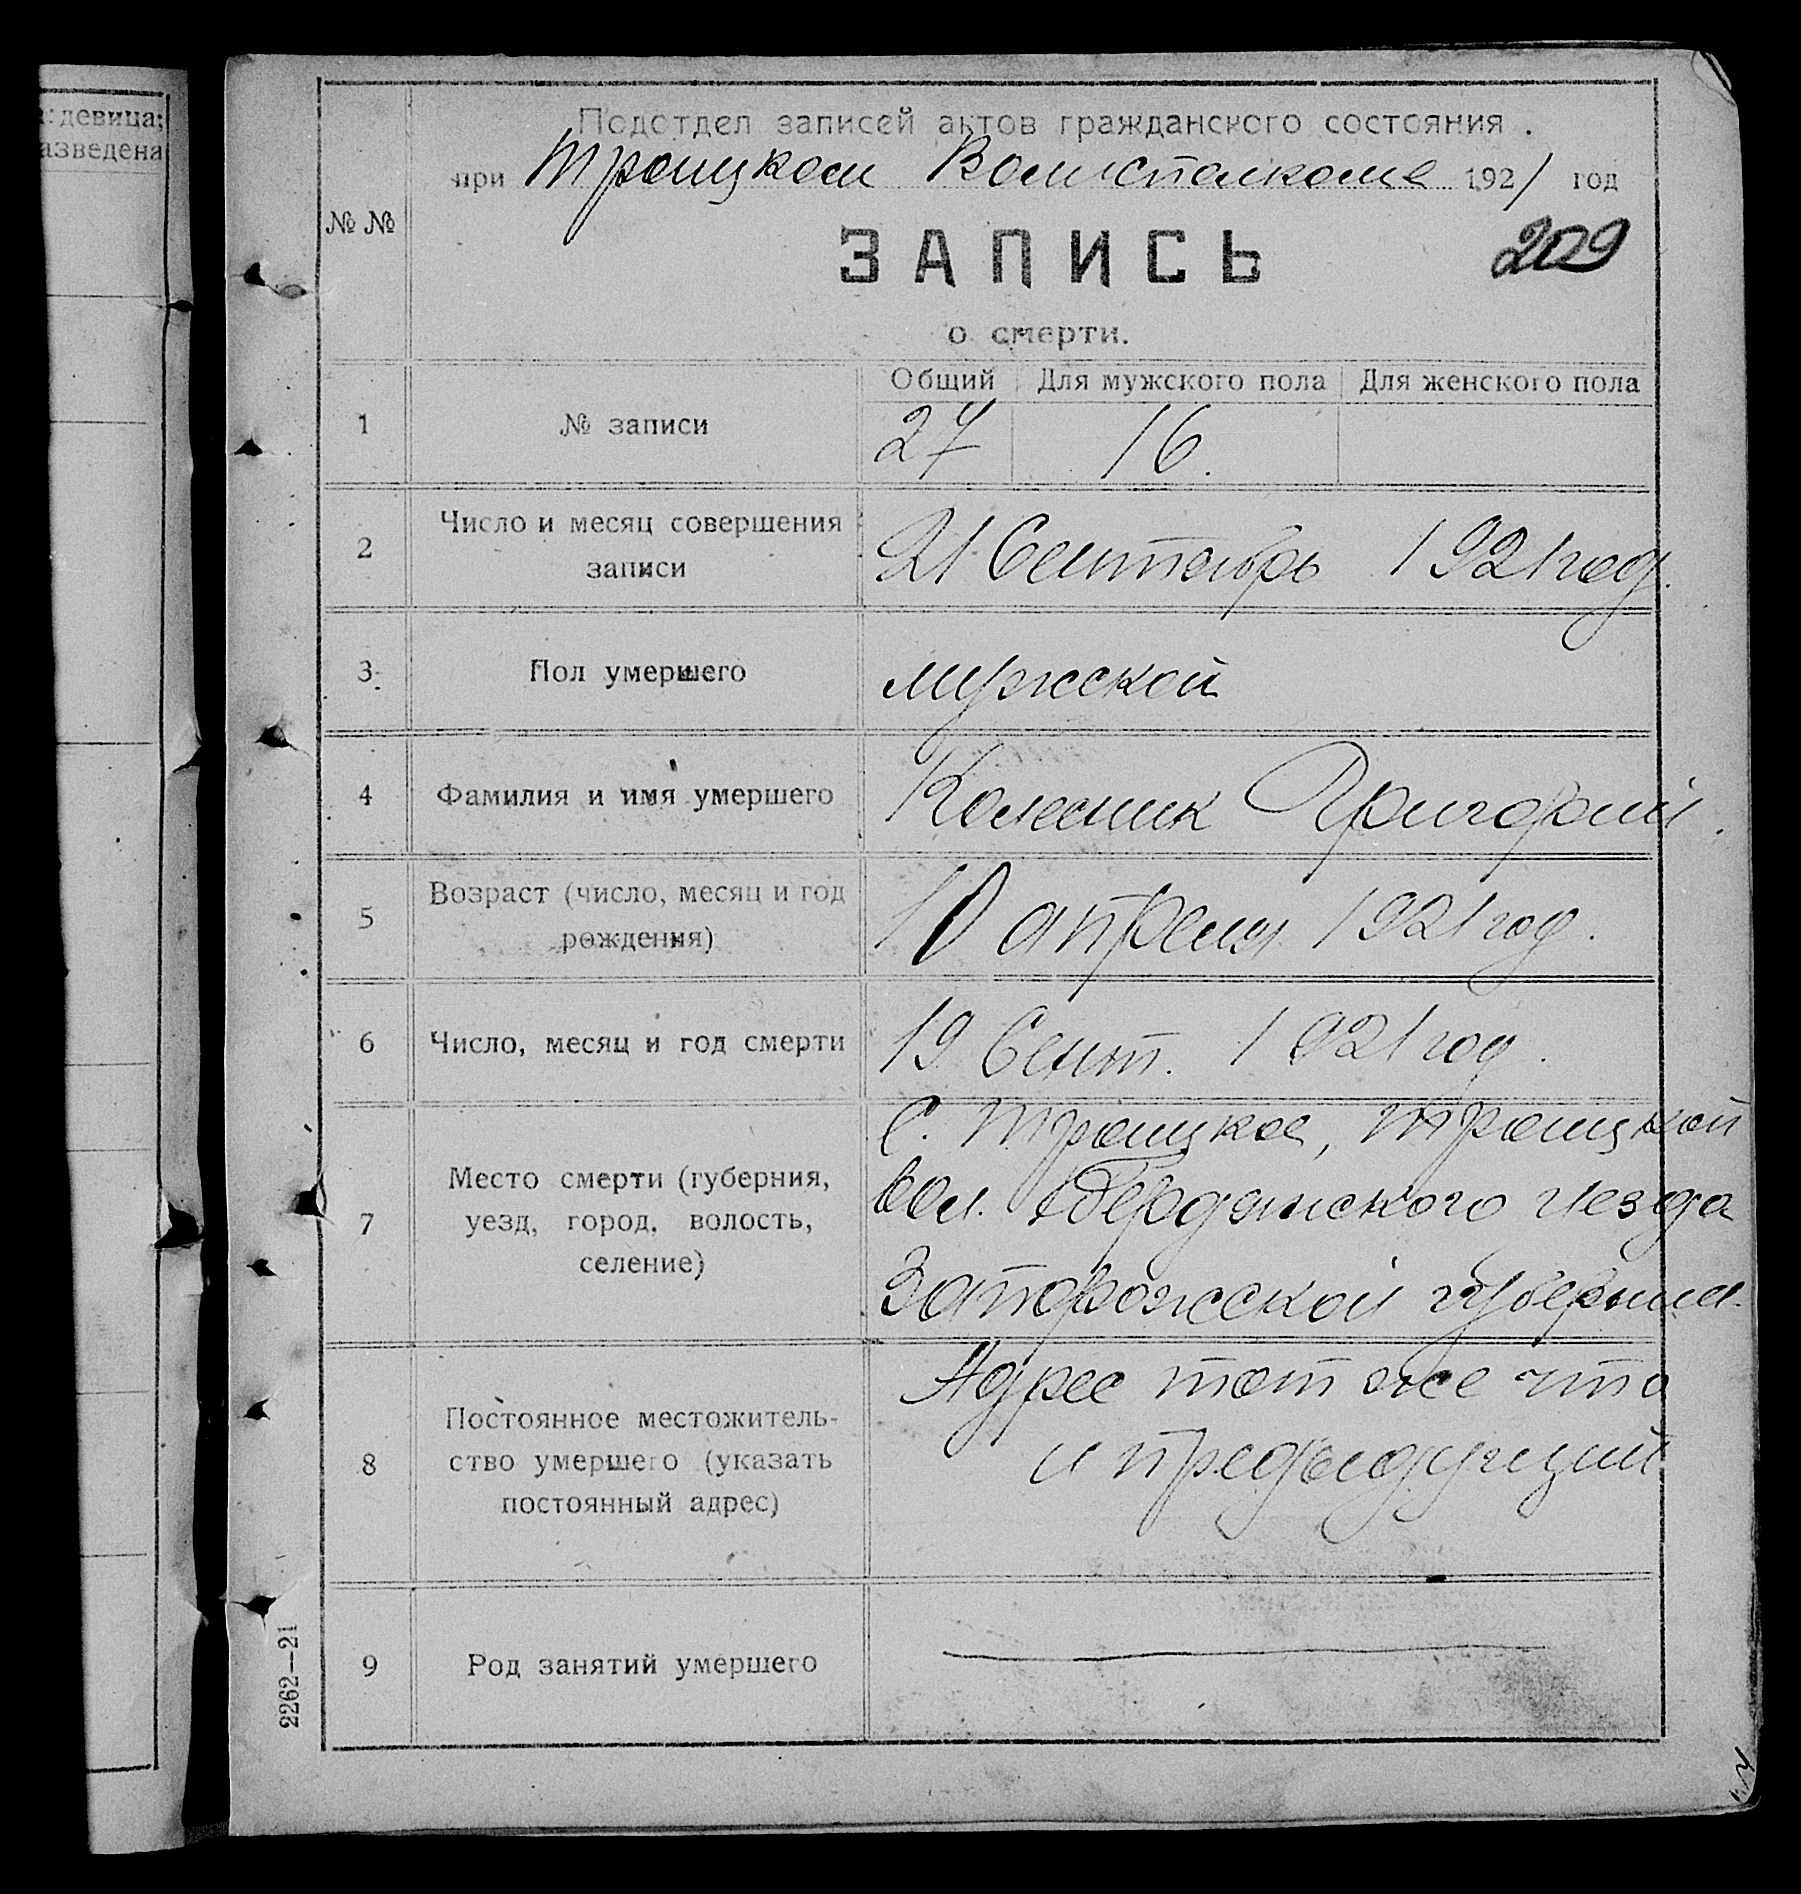 : девица;
азведена
Подотдел записей актов гражданского состояния.
при Троицком Волисполкоме 1921 год
№ №
ЗАПИСЬ
209
о смерти.
Общий Для мужского пола Для женского пола
1 № записи 27 16.
2 Число и месяц совершения
записи
21 Сентябрь 1921 год.
3 Пол умершего мужской
4 Фамилия и имя умершего Колесник Григорий.
5 Возраст (число, месяц и год
рождения)
10 апреля 1921 год.
6 Число, месяц и год смерти 19 Сент. 1921 год.
7 Место смерти (губерния,
уезд, город, волость,
селение)
С. Троицкое, Троицкой
вол. Бердянского уезда
Запорожской губернии.
8 Постоянное местожитель-
ство умершего (указать
постоянный адрес)
Адрес тот же что
и предыдущий
9 Род занятий умершего
2262—21